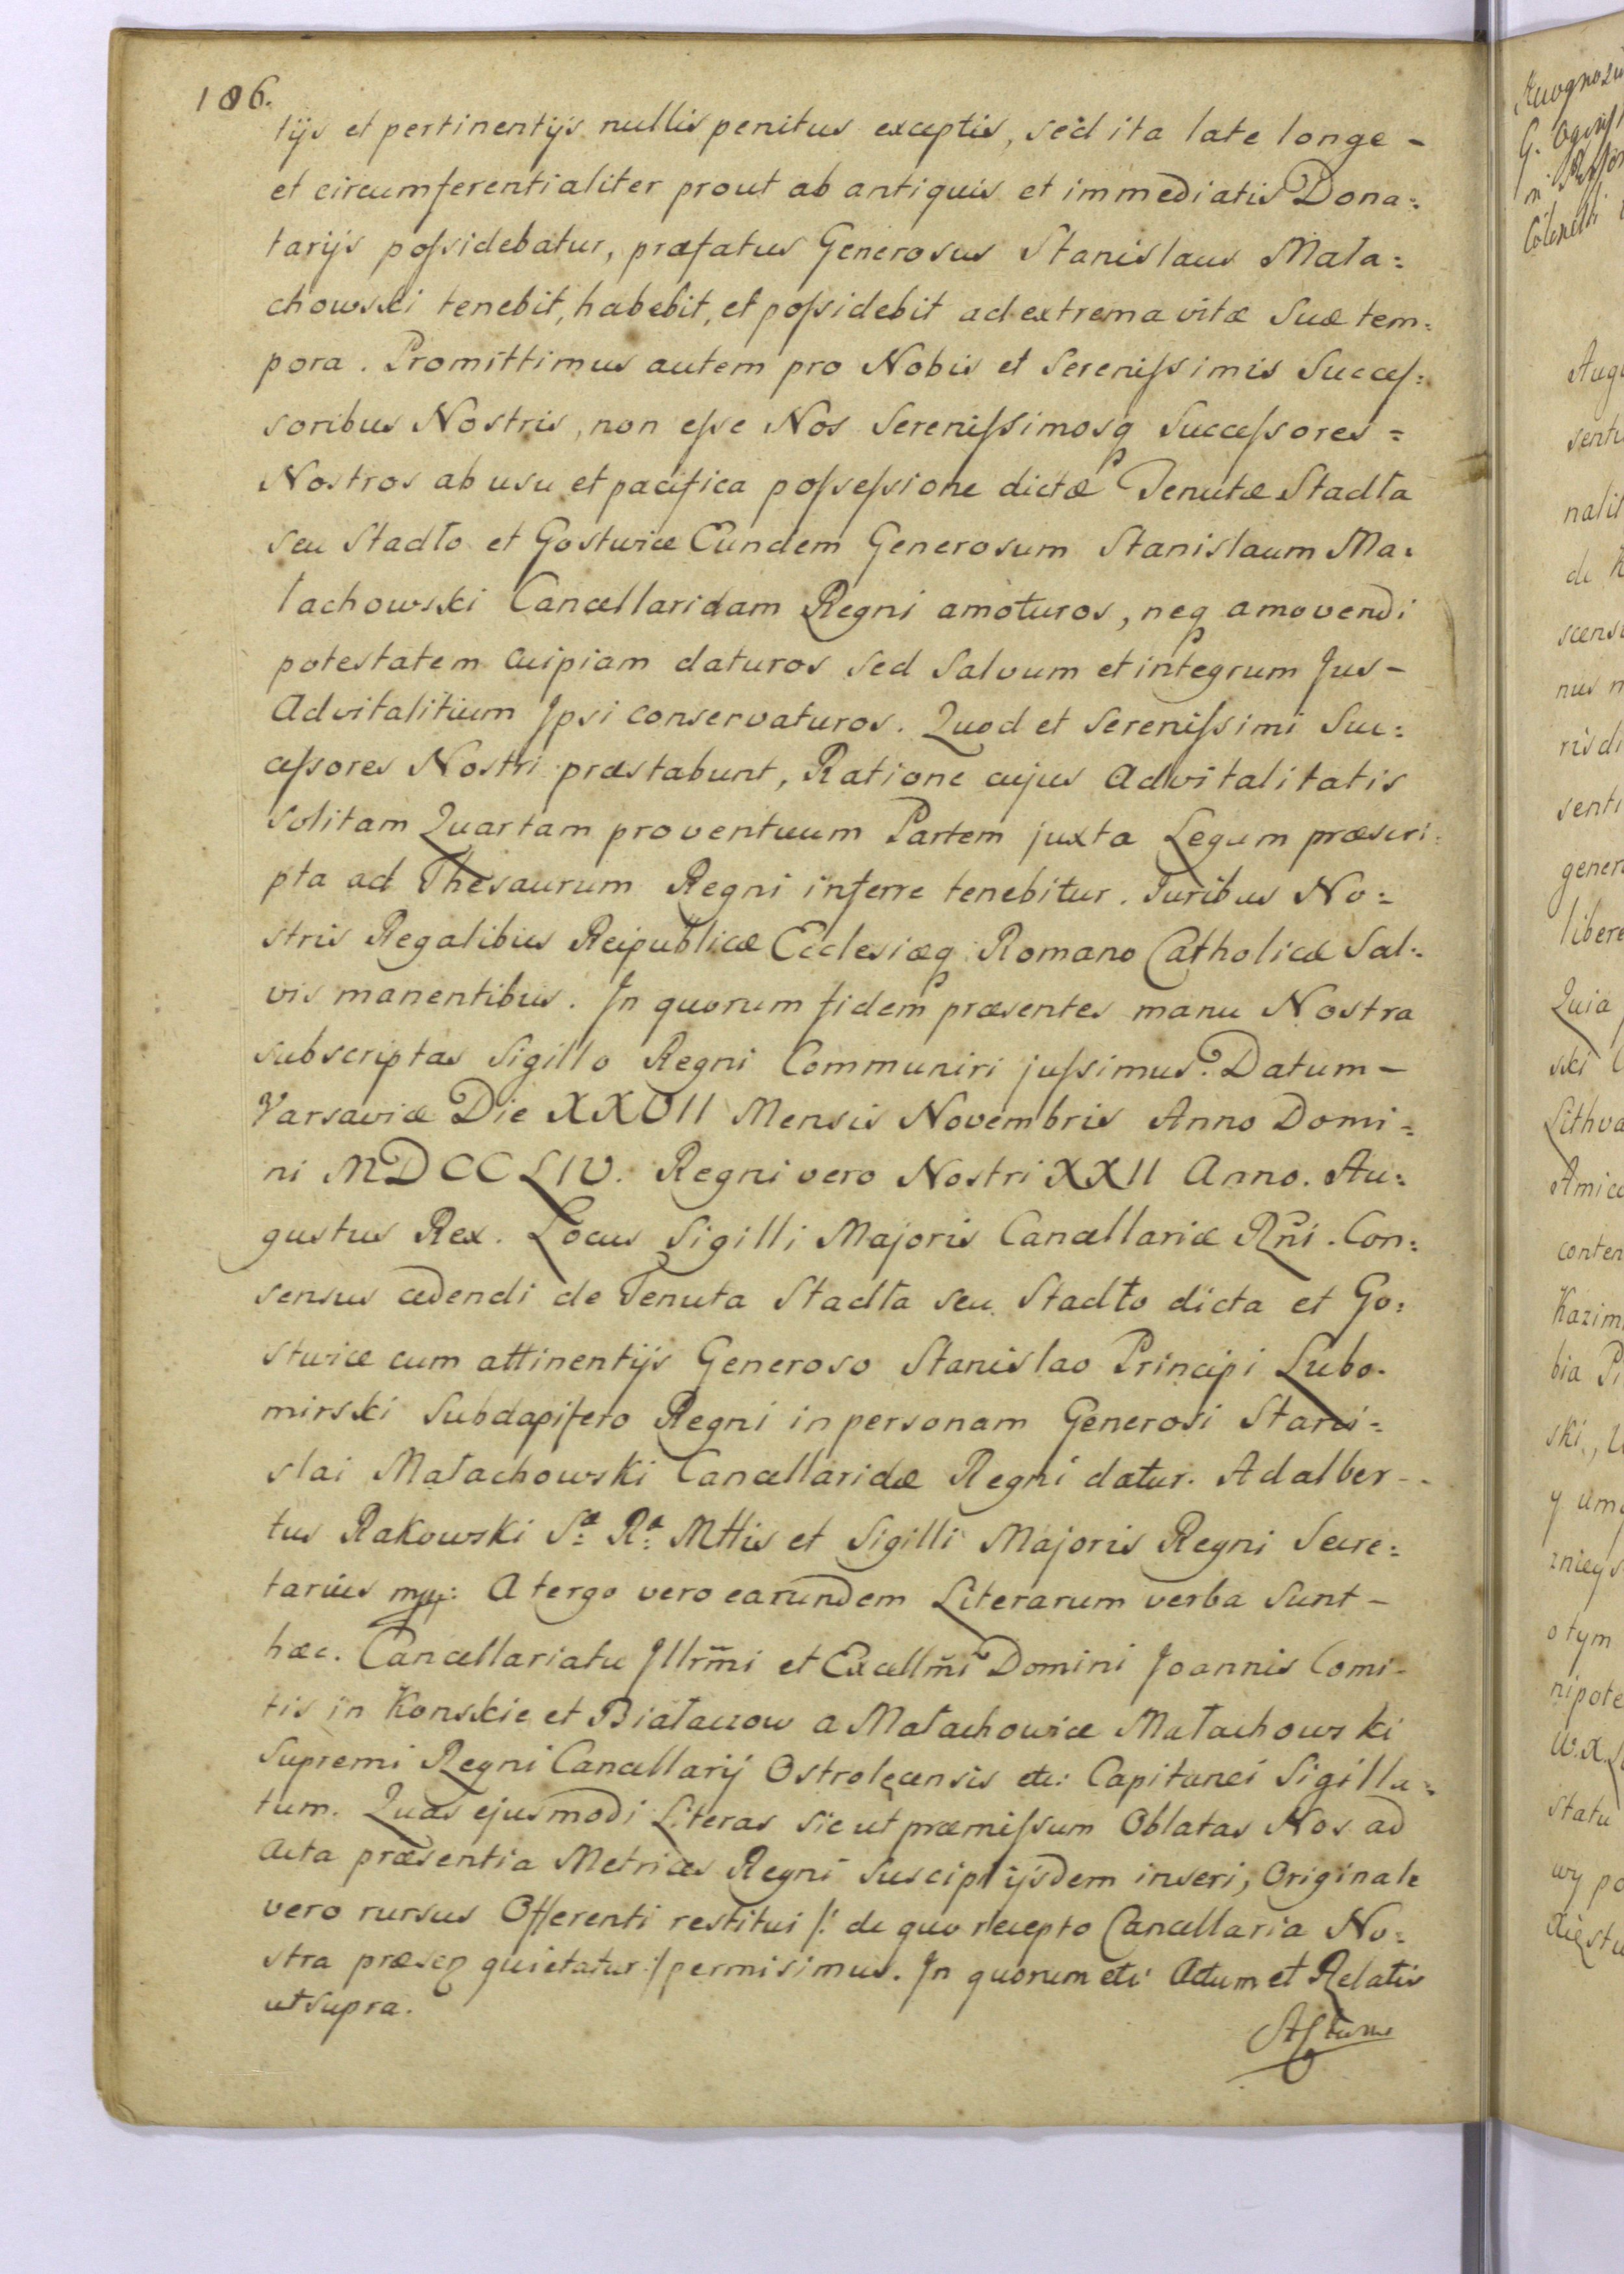 106.
tijs et pertinentijs nullis penitus exceptis, sed ita late longe -
et circumferentialiter prout ab antiquis et immediatis Dona=
tarijs poſsidebatur, præfatus Generosus Stanislaus Mała=
chowski tenebit, habebit, et poſsidebit ad extrema vitæ suæ tem=
pora. Promittimus autem pro Nobis et Sereniſsimis Succeſ=
soribus Nostris, non eſse Nos Sereniſsimosq Succeſsores =
Nostros ab usu et pacifica poſseſsione dictæ Tenutæ Stadła
seu Stadło et Gostwice Eundem Generosum Stanislaum Ma=
łachowski Cancellaridam Regni amoturos, neq amovendi
potestatem cuipiam daturos sed salvum et integrum Jus -
Advitalitium Ipsi conservaturos. Quod et Sereniſsimi Suc=
ceſsores Nostri præstabunt, Ratione cujus Advitalitatis
solitam Quartam proventuum Partem juxta Legum præscri=
pta ad Thesaurum Regni inferre tenebitur. Juribus No=
stris Regalibus Reipublicæ Ecclesiæq Romano Catholicæ Sal=
vis manentibus. In quorum fidem præsentes manu Nostra
subscriptas Sigillo Regni Communiri juſsimus. Datum -
Varsaviæ Die XXVII Mensis Novembris Anno Domi=
ni MDCCLIV. Regni vero Nostri XXII Anno. Au=
gustus Rex. Locus Sigilli Majoris Cancellariæ Rni. Con=
sensus cedendi de Tenuta Stadła seu Stadło dicta et Go=
stwice cum attinentijs Generoso Stanislao Principi Lubo=
mirski Subdapifero Regni in personam Generosi Stani=
slai Małachowski Cancellaridæ Regni datur. Adalber-
tus Rakowski Sæ Ræ Mttis et Sigilli Majoris Regni Secre=
tarius mp: A tergo vero earundem Literarum verba sunt -
hæc. Cancellariatu Illrm̃i et Excellm̃i Domini Joannis Comi-
tis in Konskie et Białaczow a Małachowice Małachowski
Supremi Regni Cancellarij Ostrolęcensis etc: Capitanei Sigilla=
tum. Quas ejusmodi Literas sic ut præmiſsum Oblatas Nos ad
Acta præsentia Metrices Regni suscipi ijsdem inseri, Originale
vero rursus Offerenti restitui /: de quo recepto Cancellaria No=
stra quietatur :/ permisimus. In quorum etc: Actum et Relatis
ut supra.